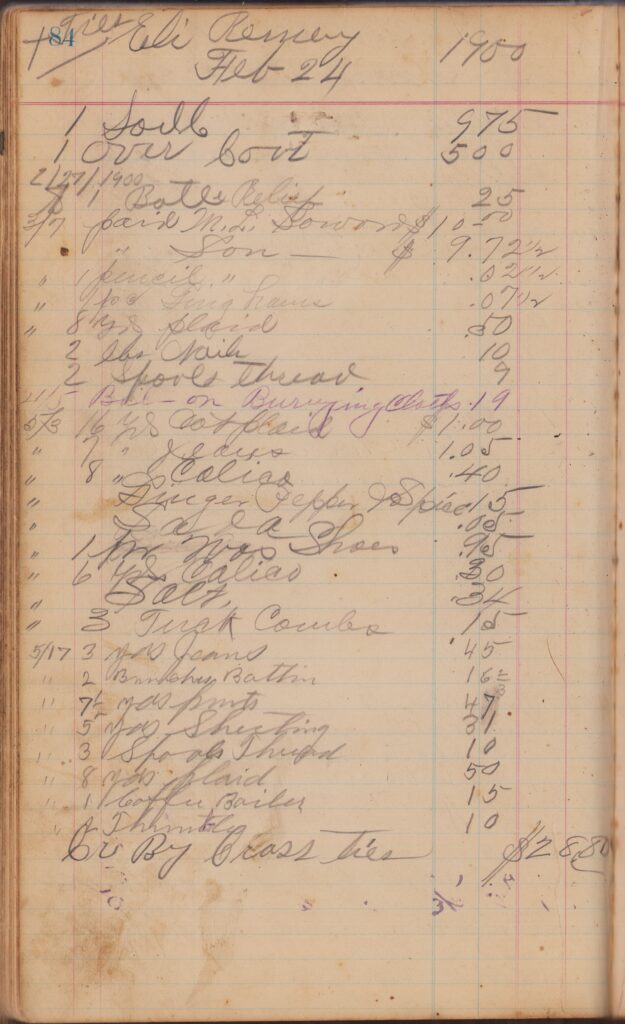 84 Ties Eli Remey 1900
Feb 24
1 9 75
1 Over Coat 5 00
2/27/1900
1 Botle Relief 25
3/7 paid M. L. $10.00
" Son — $ 9.72 1/2
" 1 pencil " .02 1/2
" .07 1/2
" 8 yds plaid .50
2 lbs Nails 10
2 Spools thread 9
Bal - on Burrying Cloths .19
5/3 16 yds Cot plaid $1.00
" 7 " Jeans 1.05
" 8 " Calico .40
" Ginger Pepper & Spice .15
" Soda .05
" 1 pr Wos Shoes .95
" 6 yds Calico 30
" Salt, .34
" 3 Tuck Combs 15
5/17 3 yds Jeans 45
" 2 Bunches Battin 16
" 7 1/2 yds prints 47
" 5 yds Sheeting 31
" 3 Spools Thread 10
" 8 yds plaid 50
" 1 Coffee Boiler 15
" Thimble 10
Cr By Cross ties $28.80